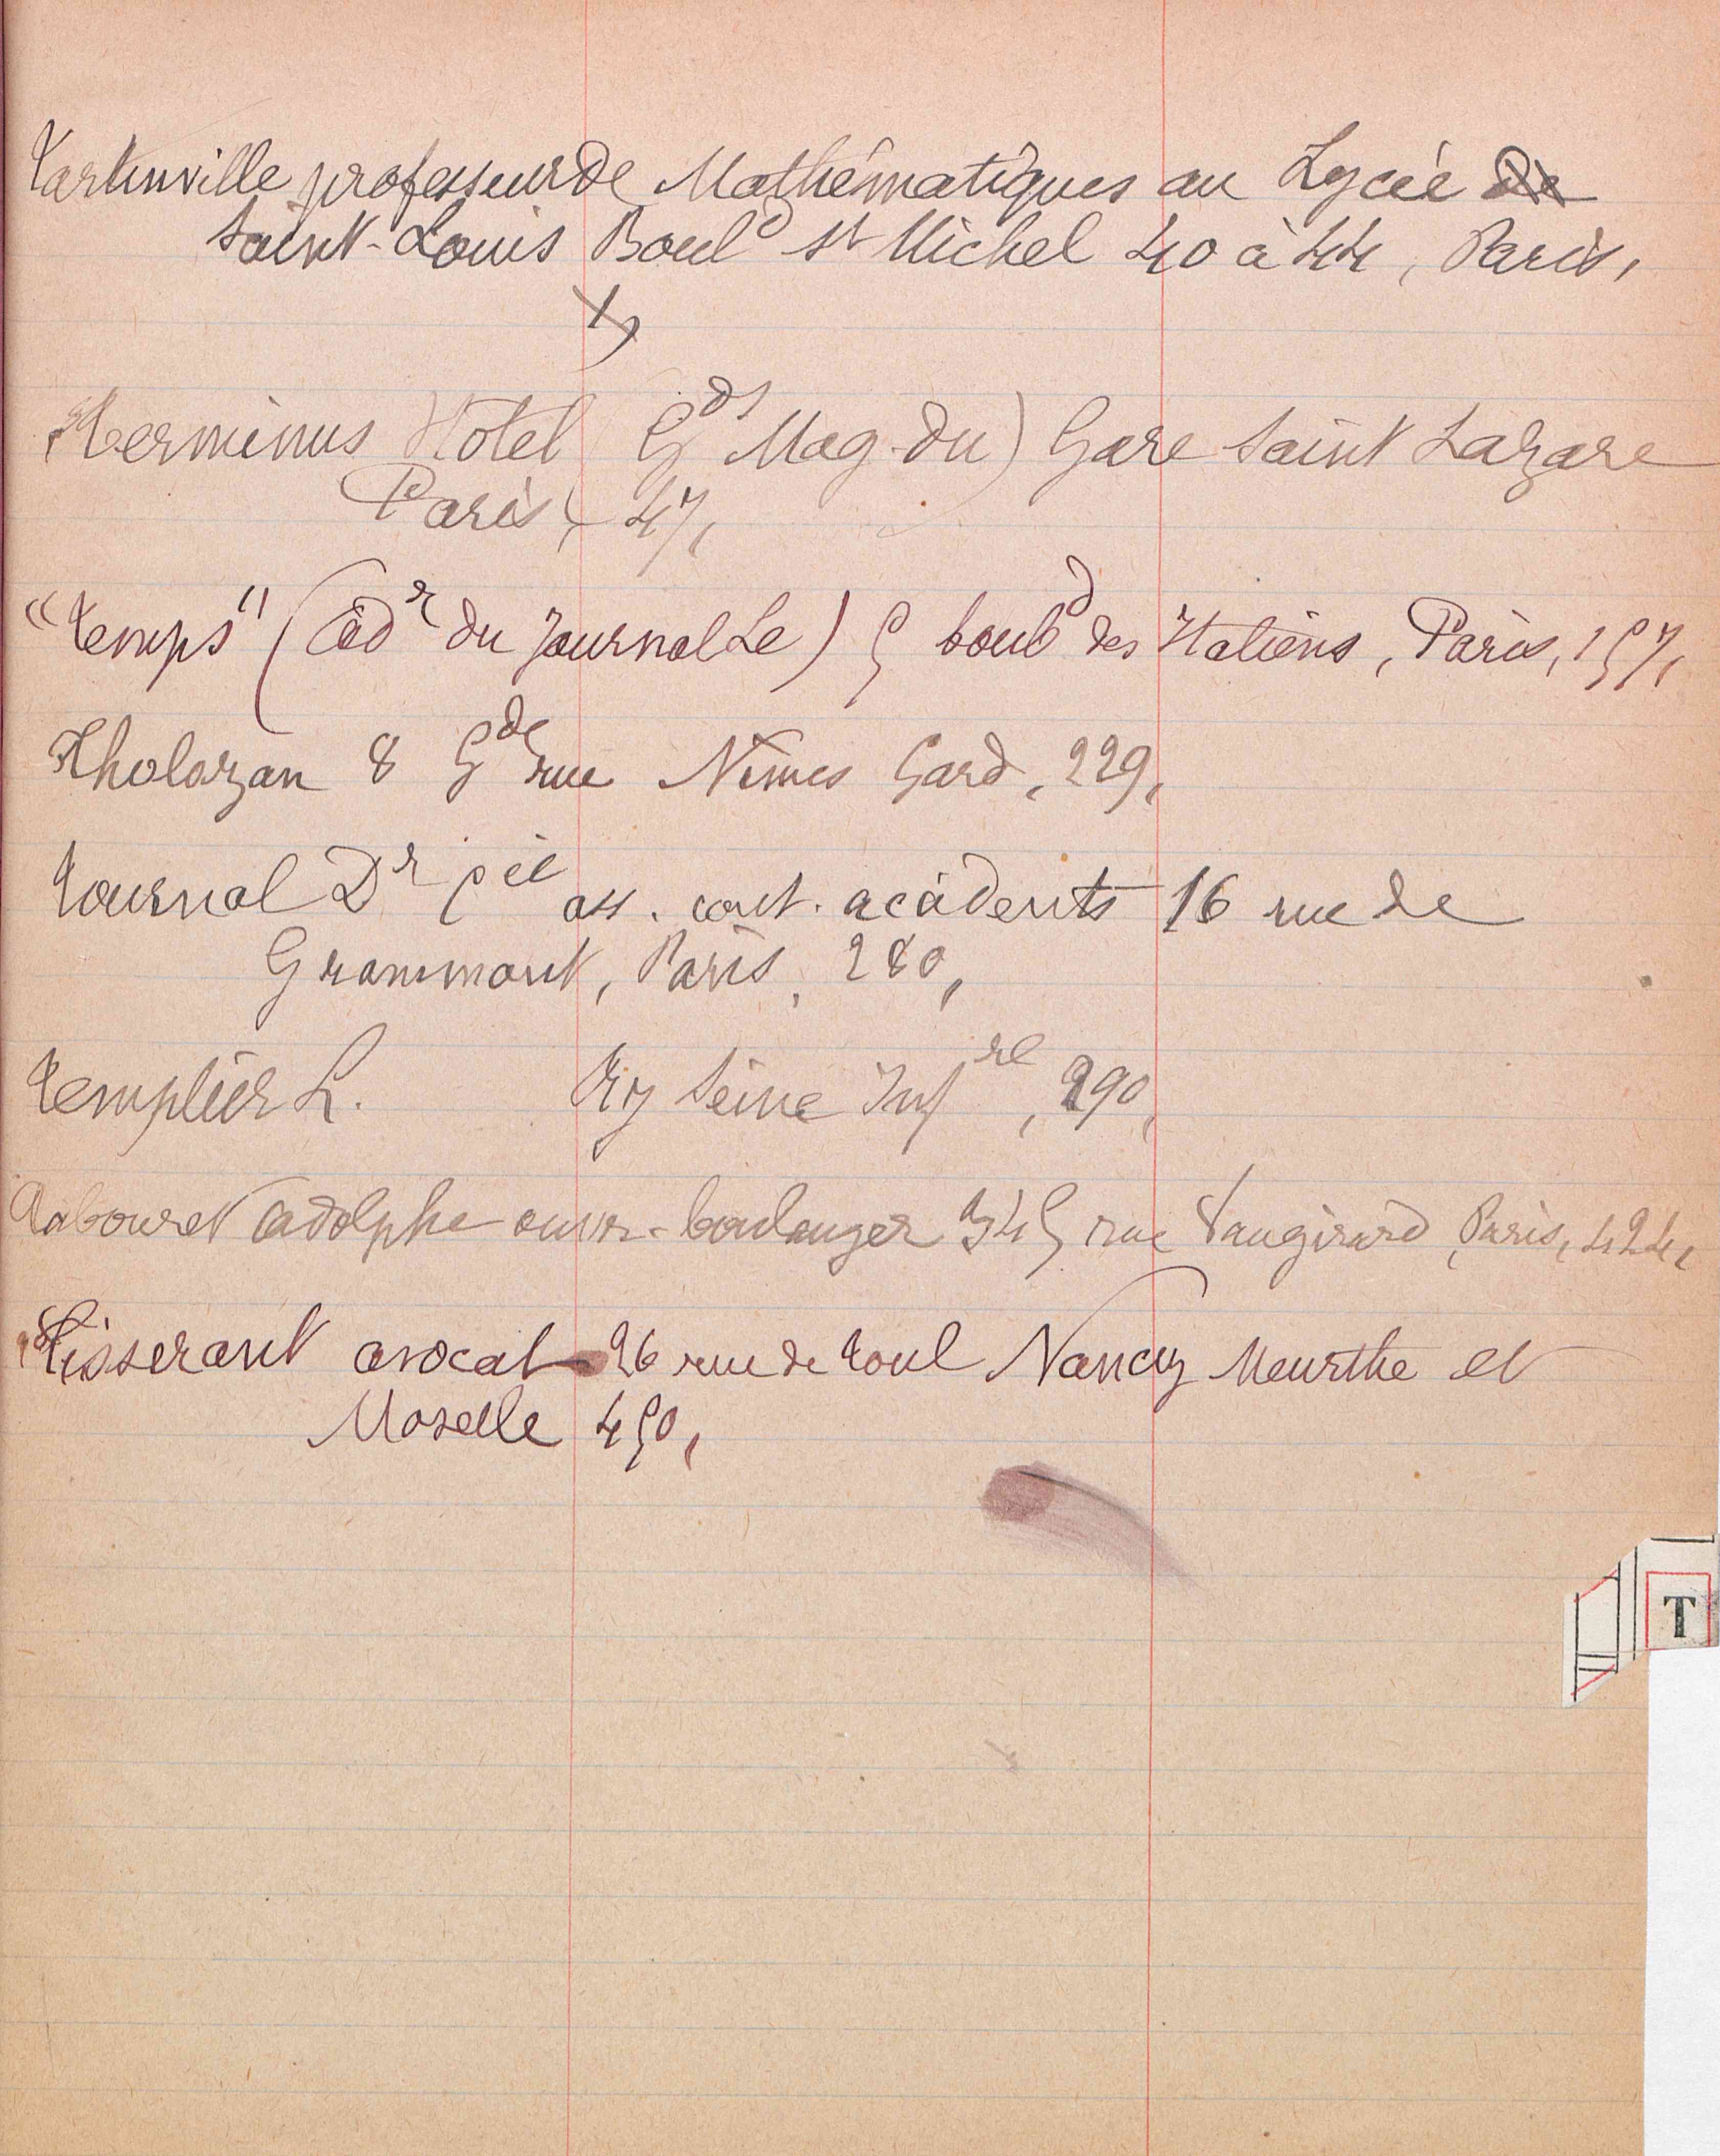 Tartinville professeur de Mathématiques au Lycée de
Saint-Louis Boulᵈ St Michel 40 à 44, Paris,
Terminus Hotel Gᵈˢ Mag. du) Gare Saint Lazare
Paris, 47,
"Temps" (Adʳ du Journal Le) 5 boulᵈ des Italiens, Paris, 157,
Tholozan 8 Gᵈᵉ rue Nîmes Gard, 229,
Tournal Dʳ pᵉˡ ass. cont. accidents 16 rue de
Grammont, Paris, 280,
Templier L. Ry Seine Infʳᵉ, 290,
Tabouret Adolphe ouvr. boulanger 345 rue Vaugirard, Paris, 424,
Tisserant avocat 26 rue de Toul Nancy Meurthe et
Moselle 450,
T